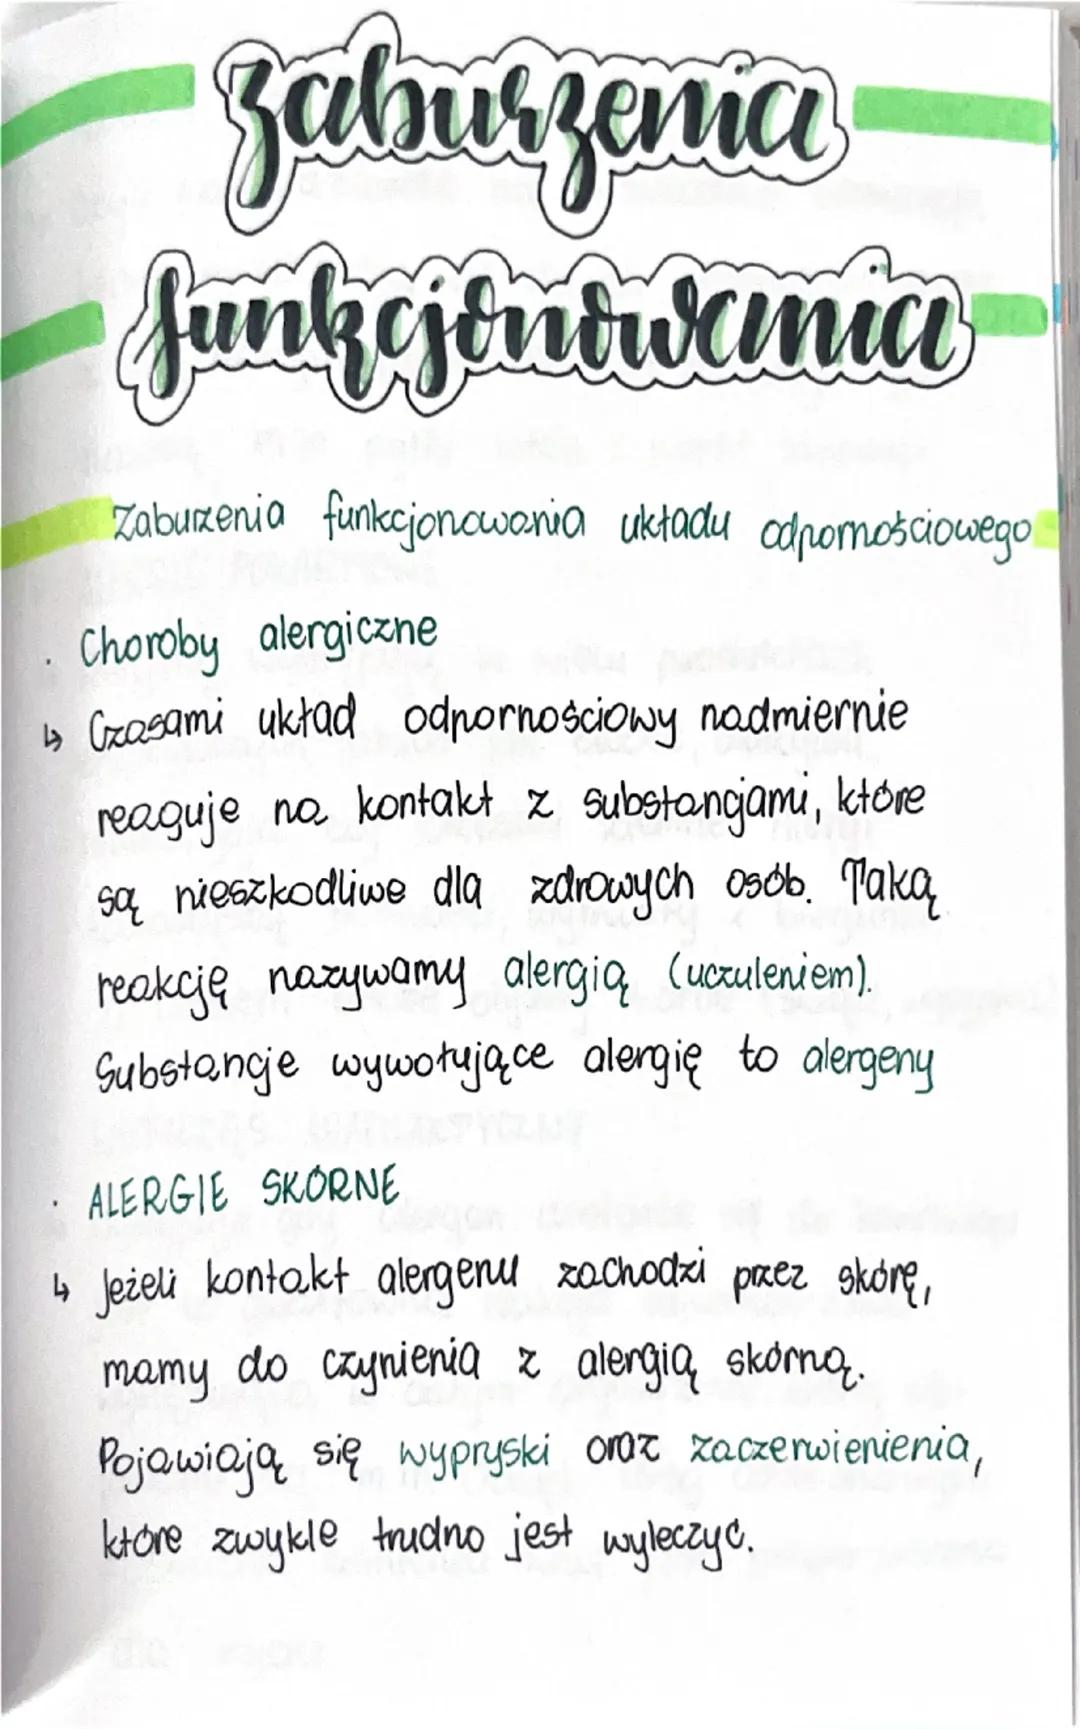 zaburzenia
funkcjonowania
Zaburzenia funkcjonowania układu odpornościowego
· Choroby alergiczne
↳ Czasami układ odpornościowy nadmiernie
reaguje na kontakt z substancjami, które
są nieszkodliwe dla zdrowych osób. Taką
reakcję nazywamy alergią (uczuleniem).
Substancje wywołujące alergię to alergeny
· ALERGIE SKÓRNE
↳ Jeżeli kontakt alergenu zachodzi przez skórę,
mamy do czynienia z alergią skórną.
Pojawiają się wypryski oraz zaczerwienienia,
które zwykle trudno jest wyleczyć.